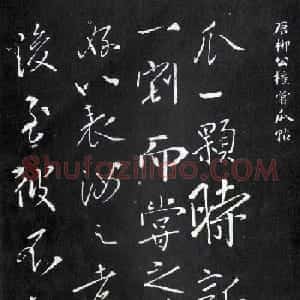 唐柳公權嘗瓜帖
瓜一顆時新
一割而嘗之
好以表汝之孝
後至彼不
Shufaziliao.com